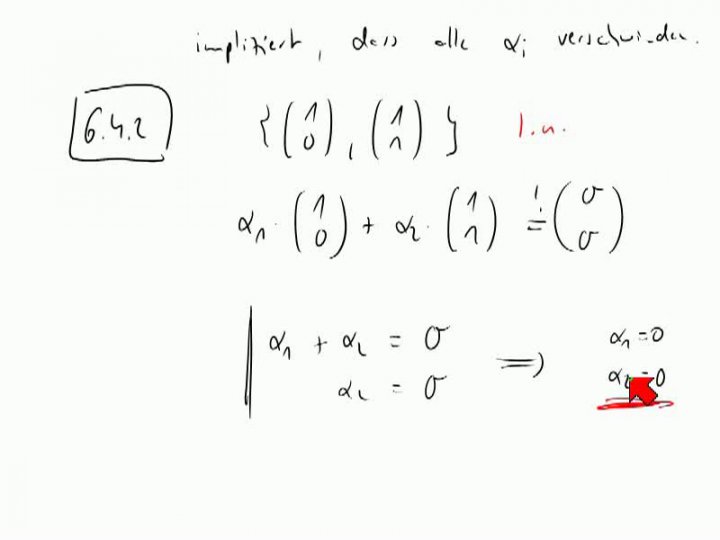 impliziert, dass alle αᵢ verschwinden.
6.4.2 { (1 0), (1 1) } l.u.
α₁ · (1 0) + α₂ · (1 1) =! (0 0)
α₁ + α₂ = 0 ⟹ α₁ = 0
α₂ = 0 α₂ = 0